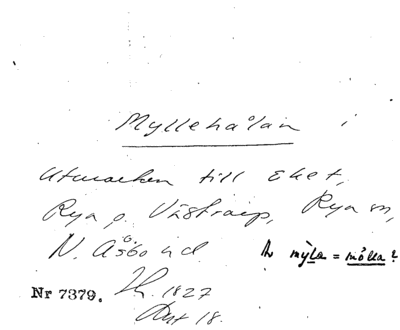 Myllehålan i
Utmarken till Eket,
Rya o. Västraup, Rya sn,
N. Åsbo hd.
myla = mölla?
Nr 7379. Th. 1827
18.